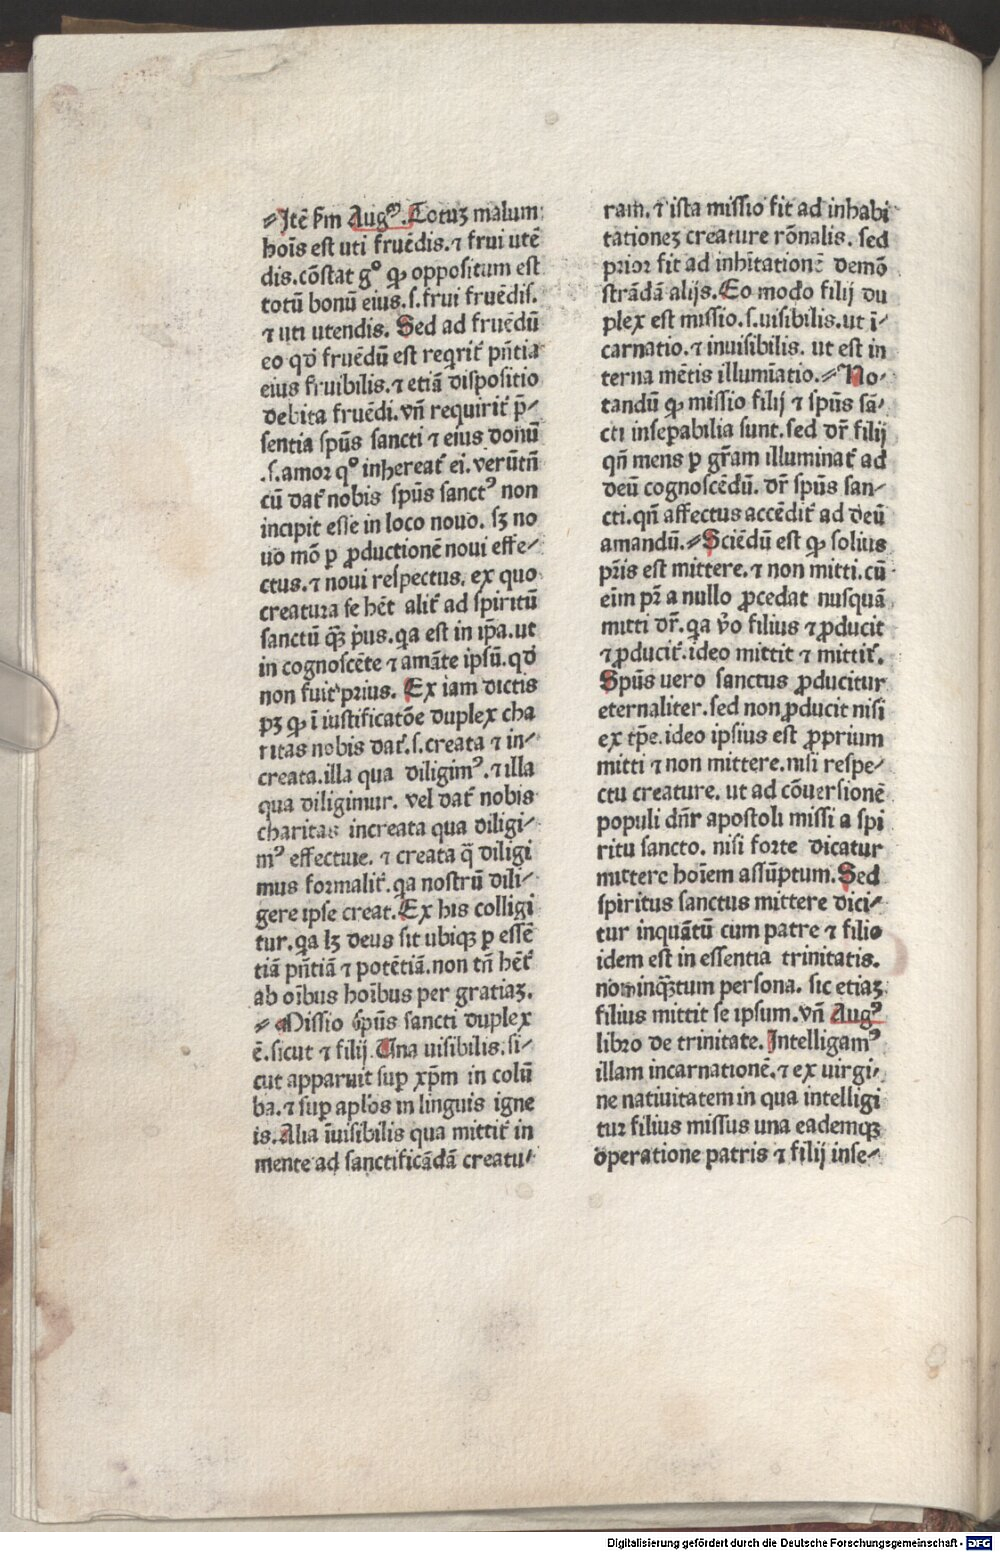 ⸗Itē ẜm Augᵐ. Totuꝫ malum
hoīs est uti fruēdis. ⁊ frui utē
dis. cōstat g° ꝙ oppositum est
totū bonū eius. s. frui fruēdis.
⁊ uti utendis. Sed ad fruēdū
eo qđ fruēdū est reqrit᷑ pn̄tia
eius fruibilis. ⁊ etiā dispositio
debita fruēdi. vn̄ requirit᷑ p̄⸗
sentia spūs sancti ⁊ eius donū
.s. amor q° inhereat᷑ ei. verūtn̄
cū dat᷑ nobis spūs sanctꝰ non
incipit esse in loco nouo. sꝫ no
uo mō ꝑ ꝓductionē noui effe⸗
ctus. ⁊ noui respectus. ex quo
creatura se hēt alit᷑ ad spiritū
sanctū qꝫ̄ pͥus. qa est in ip̄a. ut
in cognoscēte ⁊ amāte ipsū. qđ
non fuit prius. Ex iam dictis
pꝫ ꝙ ī iustificatōe duplex cha
ritas nobis dat᷑. s. creata ⁊ in⸗
creata. illa qua diligimꝰ. ⁊ illa
qua diligimur. vel dat᷑ nobis
charitas increata qua diligi⸗
mꝰ effectiue. ⁊ creata q̄ diligi
mus formalit᷑. qa nostrū dili⸗
gere ipse creat. Ex his colligi
tur. qa lꝫ deus sit ubiqꝫ ꝑ essē
tiā pn̄tiā ⁊ potētiā. non tn̄ hēt᷑
ab oībus hoībus per gratiaꝫ.
⸗ Missio spūs sancti duplex
ē. sicut ⁊ filij. Una uisibilis. si⸗
cut apparuit sup xp̄m in colū
ba. ⁊ sup apl'os in linguis igne
is. Alia īuisibilis qua mittit᷑ in
mente ad sanctificādā creatu⸗
ram. ⁊ ista missio fit ad inhabi
tationeꝫ creature rōnalis. sed
prior fit ad inhītationē demō
strādā alijs. Eo modo filij du
plex est missio. s. uisibilis. ut ī⸗
carnatio. ⁊ inuisibilis. ut est in
terna mētis illumīatio. ⸗ No⸗
tandū ꝙ missio filij ⁊ spūs sā⸗
cti insepabilia sunt. sed dr̄ filij
qn̄ mens ꝑ gr̄am illuminat᷑ ad
deū cognoscēdū. dr̄ spūs san⸗
cti. qn̄ affectus accēdit᷑ ad deū
amandū. ⸗ Sciēdū est ꝙ solius
pr̄is est mittere. ⁊ non mitti. cū
eīm pr̄ a nullo ꝓcedat nusquā
mitti dr̄. qa v̊o filius ⁊ ꝓducit
⁊ ꝓducit᷑. ideo mittit ⁊ mittit᷑.
Spūs uero sanctus ꝓducitur
eternaliter. sed non ꝓducit nisi
ex tp̄e. ideo ipsius est ꝓprium
mitti ⁊ non mittere. nisi respe⸗
ctu creature. ut ad cōuersionē
populi dn̄r apostoli missi a spi
ritu sancto. nisi forte dicatur
mittere hoīem assūptum. Sed
spiritus sanctus mittere dici⸗
tur inquātū cum patre ⁊ filio
idem est in essentia trinitatis.
non inqꝫ̄tum persona. sic etiaꝫ
filius mittit se ipsum. vn̄ Augꝰ
libro de trinitate. Intelligamꝰ
illam incarnationē. ⁊ ex virgi⸗
ne natiuitatem in qua intelligi
tur filius missus una eademqꝫ
operatione patris ⁊ filij inse⸗
Digitalisierung gefördert durch die Deutsche Forschungsgemeinschaft - DFG